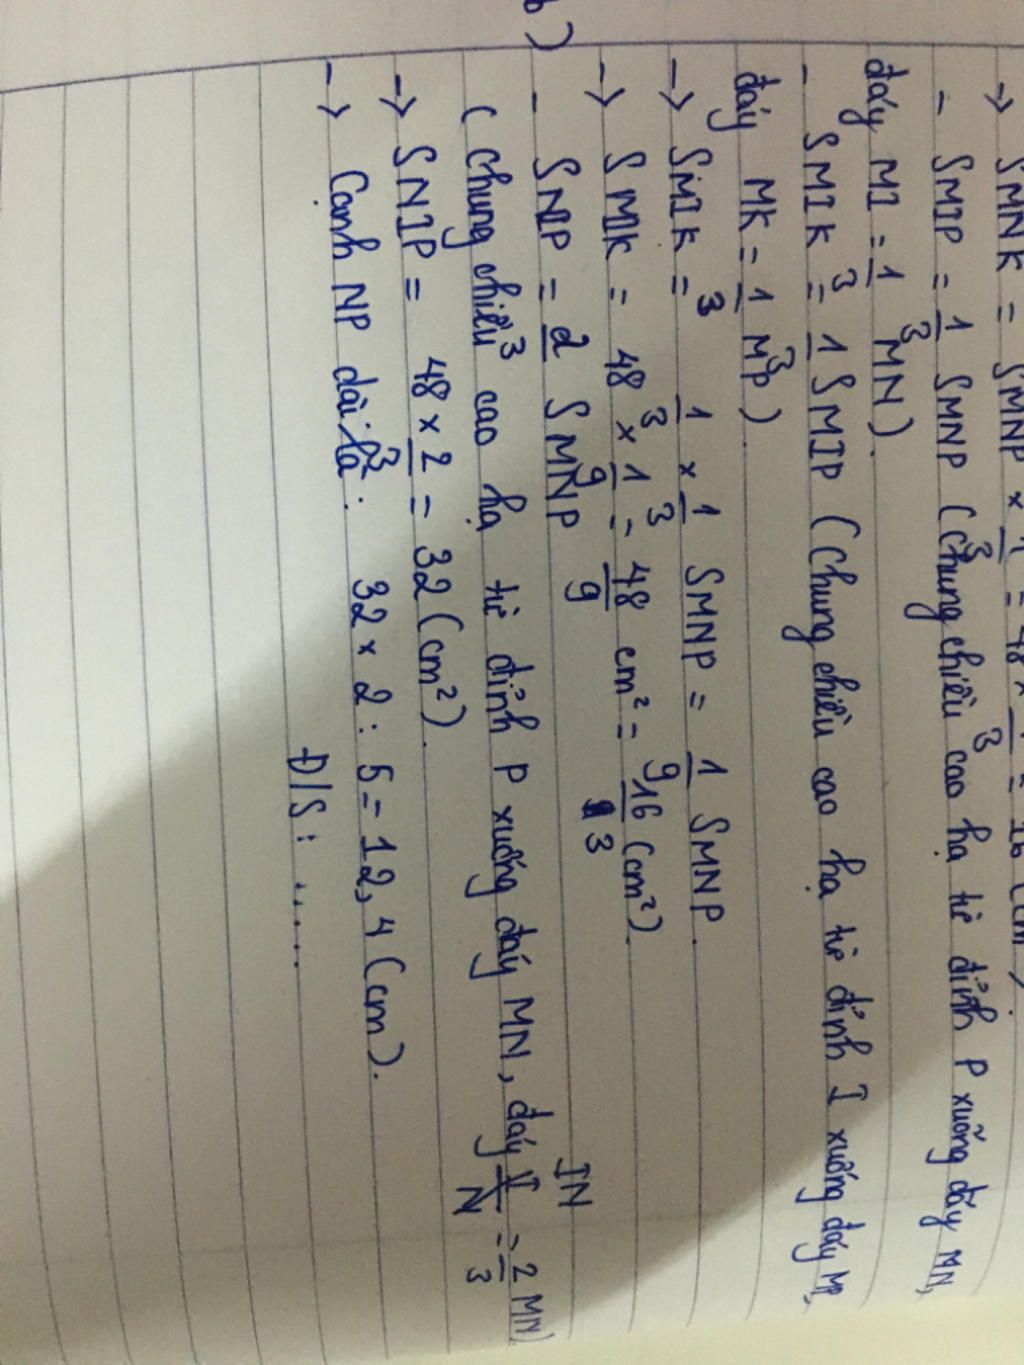 → SMNK = SMNP × 1/3 = 48 × 1/3 = 16 (cm²).
- SMIP = 1/3 SMNP (Chung chiều cao hạ từ đỉnh P xuống đáy MN,
đáy MI = 1/3 MN).
- SMIK = 1/3 SMIP (Chung chiều cao hạ từ đỉnh I xuống đáy MP,
đáy MK = 1/3 MP)
→ SMIK = 1/3 × 1/3 SMNP = 1/9 SMNP.
→ SMIK = 48 × 1/9 = 48/9 cm² = 16/3 (cm²).
b)
- SNIP = 2/3 SMNP
(Chung chiều cao hạ từ đỉnh P xuống đáy MN, đáy IN = 2/3 MN)
→ SNIP = 48 × 2/3 = 32 (cm²).
→ Cạnh NP dài là: 32 × 2 : 5 = 12,4 (cm).
Đ/S: .....